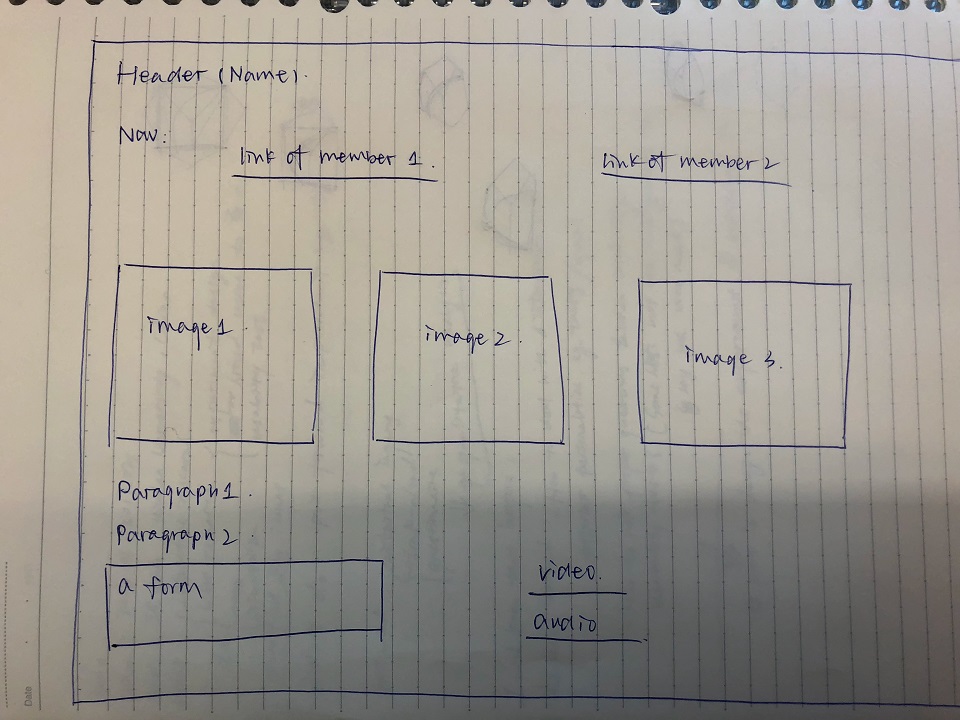 Header (Name).
Nav:
link of member 1.
link of member 2
image 1
image 2.
image 3.
Paragraph 1.
Paragraph 2.
a form
video.
audio
Date